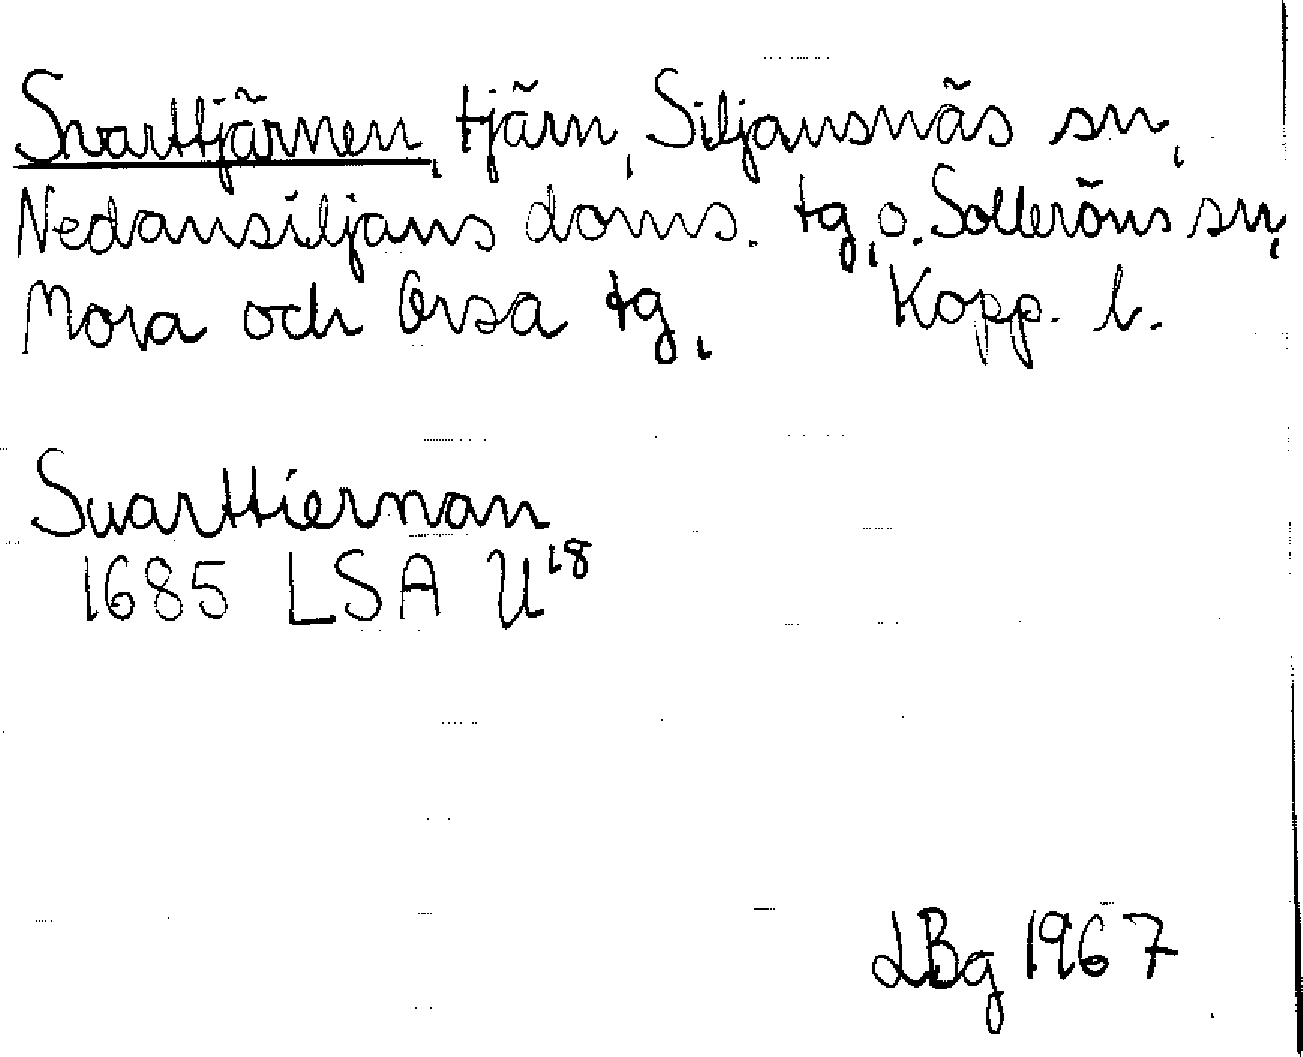 Svarttjärnen, tjärn, Siljansnäs sn,
Nedansiljans doms. tg, o. Solleröns sn,
Mora och Orsa tg, Kopp. l.
Suarttiernan
1685 LSA U18
LBg 1967